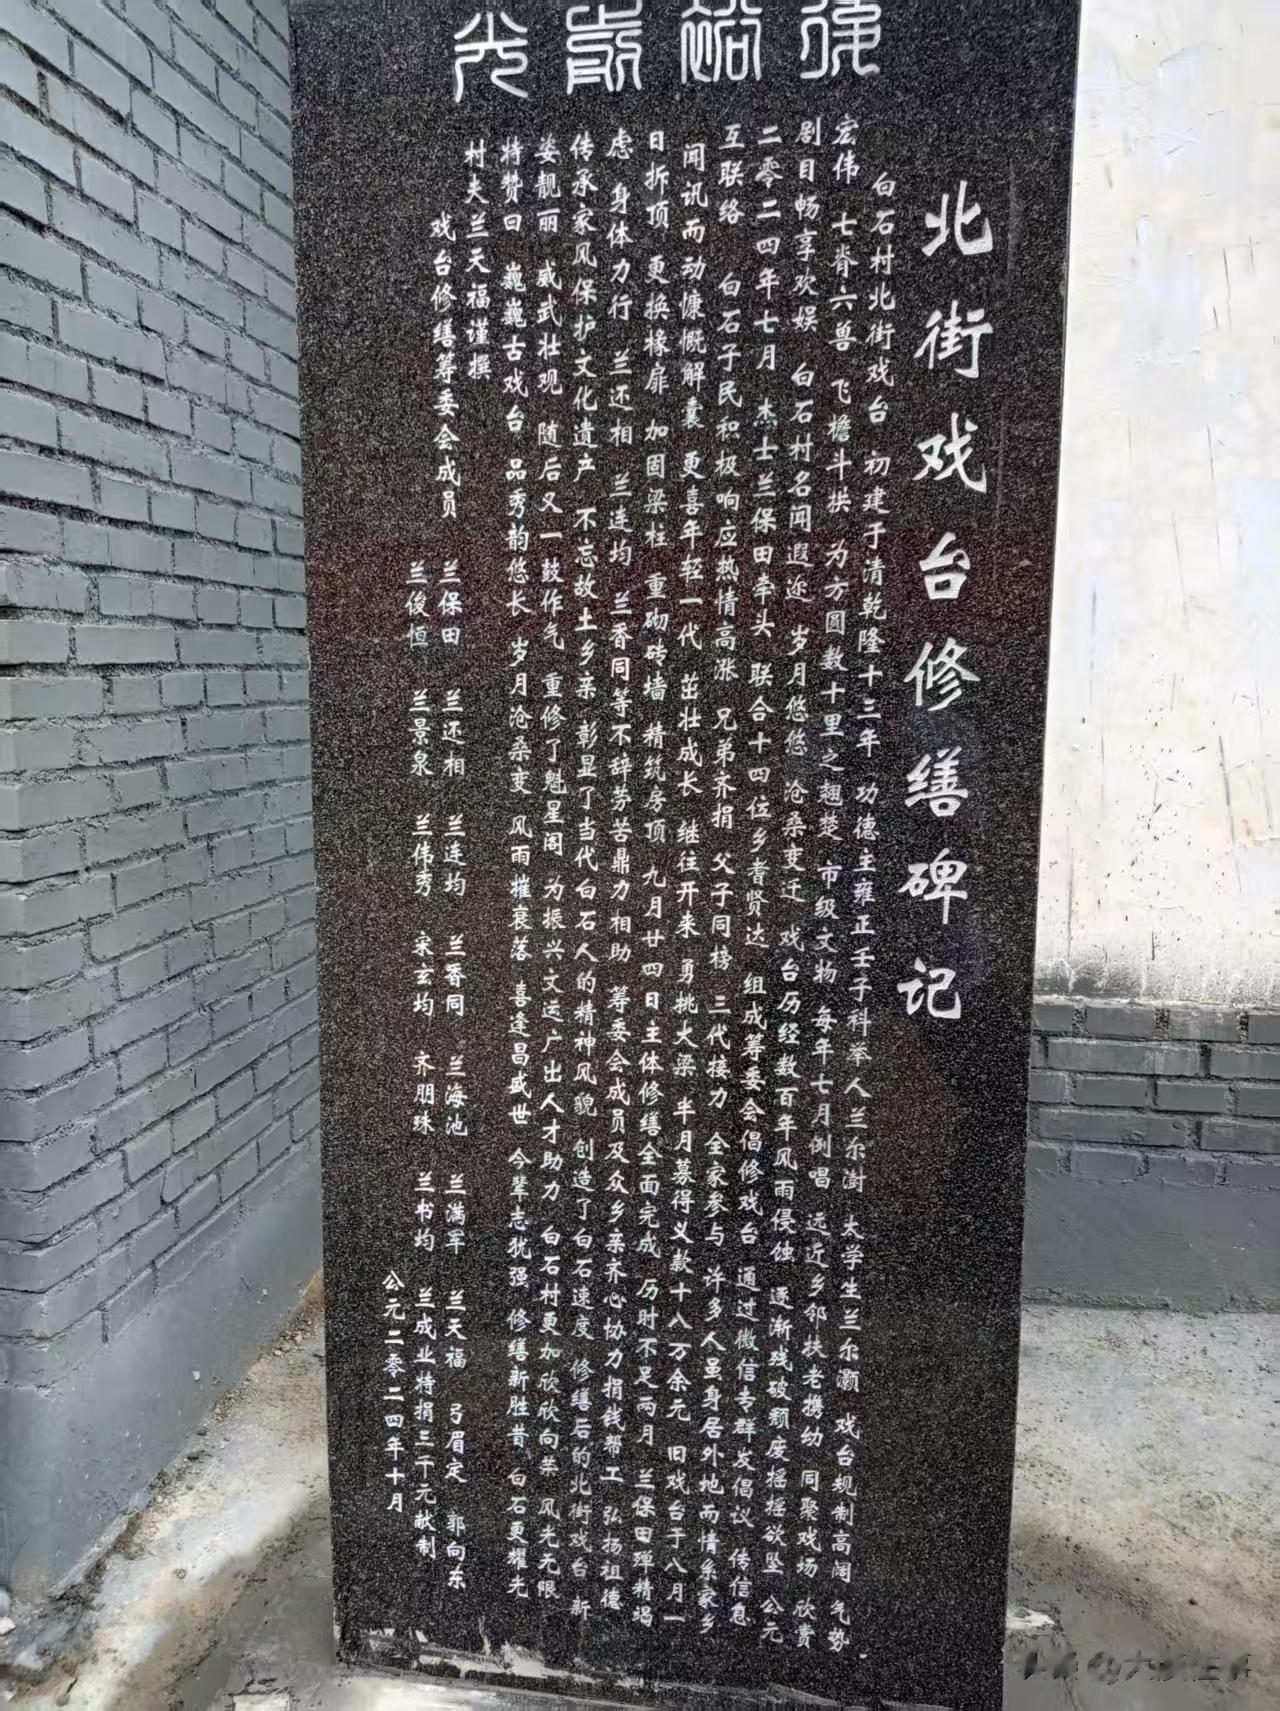 裕
光
北街戏台修缮碑记
白石村北街戏台 初建于清乾隆十三年 功德主雍正壬子科举人兰尔澍 太学生兰尔灏 戏台规制高阔 气势
宏伟 七脊六兽 飞檐斗拱 为方圆数十里之翘楚 市级文物 每年七月倒唱 远近乡邻扶老携幼 同聚戏场 欣赏
剧目畅享欢娱 白石村名闻遐迩 岁月悠悠 沧桑变迁 戏台历经数百年风雨侵蚀 逐渐残破颓废摇摇欲坠 公元
二零二四年七月 杰士兰保田牵头 联合十四位乡耆贤达 组成筹委会倡修戏台 通过微信专群发倡议 传信息
互联络 白石子民积极响应热情高涨 兄弟齐捐 父子同榜 三代接力 全家参与 许多人虽身居外地而情系家乡
闻讯而动慷慨解囊 更喜年轻一代 茁壮成长 继往开来 勇挑大梁 半月募得义款十八万余元 旧戏台于八月一
日拆顶 更换椽扉 加固梁柱 重砌砖墙 精筑房顶 九月廿四日主体修缮全面完成 历时不足两月 兰保田殚精竭
虑 身体力行 兰还相 兰连均 兰香同等不辞劳苦鼎力相助 筹委会成员及众乡亲齐心协力捐钱帮工 弘扬祖德
传承家风保护文化遗产 不忘故土乡亲 彰显了当代白石人的精神风貌 创造了白石速度 修缮后的北街戏台 新
姿靓丽 威武壮观 随后又一鼓作气 重修了魁星阁 为振兴文运广出人才助力 白石村更加欣欣向荣 风光无限
特赞曰 巍巍古戏台 品秀韵悠长 岁月沧桑变 风雨摧衰落 喜逢昌盛世 今辈志犹强 修缮新胜昔 白石更耀光
村夫兰天福谨撰
戏台修缮筹委会成员 兰保田 兰还相 兰连均 兰香同 兰海池 兰满军 兰天福 弓眉定 郭向东
兰俊恒 兰景泉 兰伟秀 宋玄均 齐朋珠 兰书均 兰成业特捐三千元献制
公元二零二四年十月